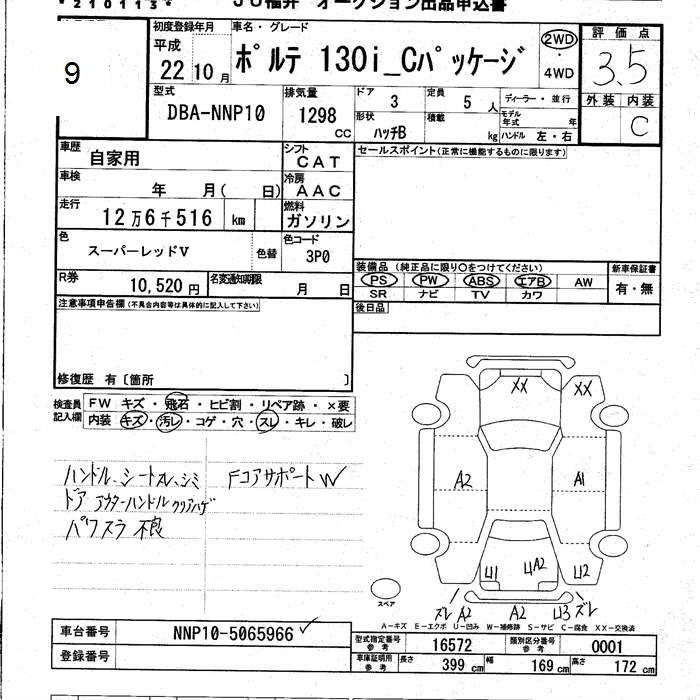 * 2 1 0 1 1 3 *
JU福井 オークション出品申込書
9
初度登録年月
平成
22 10月
車名・グレード
ポルテ 130i_Cパッケージ
2WD
・
4WD
評価点
3.5
外装 内装
C
型式
DBA-NNP10
排気量
1298
CC
ドア
3
定員
5 人
ディーラー・並行
形状
ハッチB
積載
kg
モデル年式 年
ハンドル 左・右
車歴
自家用
シフト
CAT
セールスポイント(正常に機能するものに限ります)
車検
年 月( 日)
冷房
AAC
走行
12万6千516 km
燃料
ガソリン
色
スーパーレッドV
色替
色コード
3P0
R券
10,520円
名変通知期限
月 日
装備品 (純正品に限り○をつけてください)
新車保証書
PS PW ABS エアB AW
有・無
SR ナビ TV カワ
注意事項申告欄(不具合内容等は具体的に記入して下さい)
後日品
修復歴 有〔箇所 〕
検査員記入欄
FW キズ・飛石・ヒビ割・リペア跡・×要
内装 キズ・汚レ・コゲ・穴・スレ・キレ・破レ
ハンドル、シートスレ、シミ
ドア アウターハンドル クリアハゲ
パワスラ 不良
Fコアサポート W
XX XX
A2 A1
U1 UA2 U2
スペア
ズレ A2 A2 U3 ズレ
A-キズ E-エクボ U-凹み W-補修跡 S-サビ C-腐食 XX-交換済
車台番号
NNP10-5065966
登録番号
型式指定番号 参考
16572
類別区分番号 参考
0001
車庫証明用 参考
長さ 399 cm 幅 169 cm 高さ 172 cm